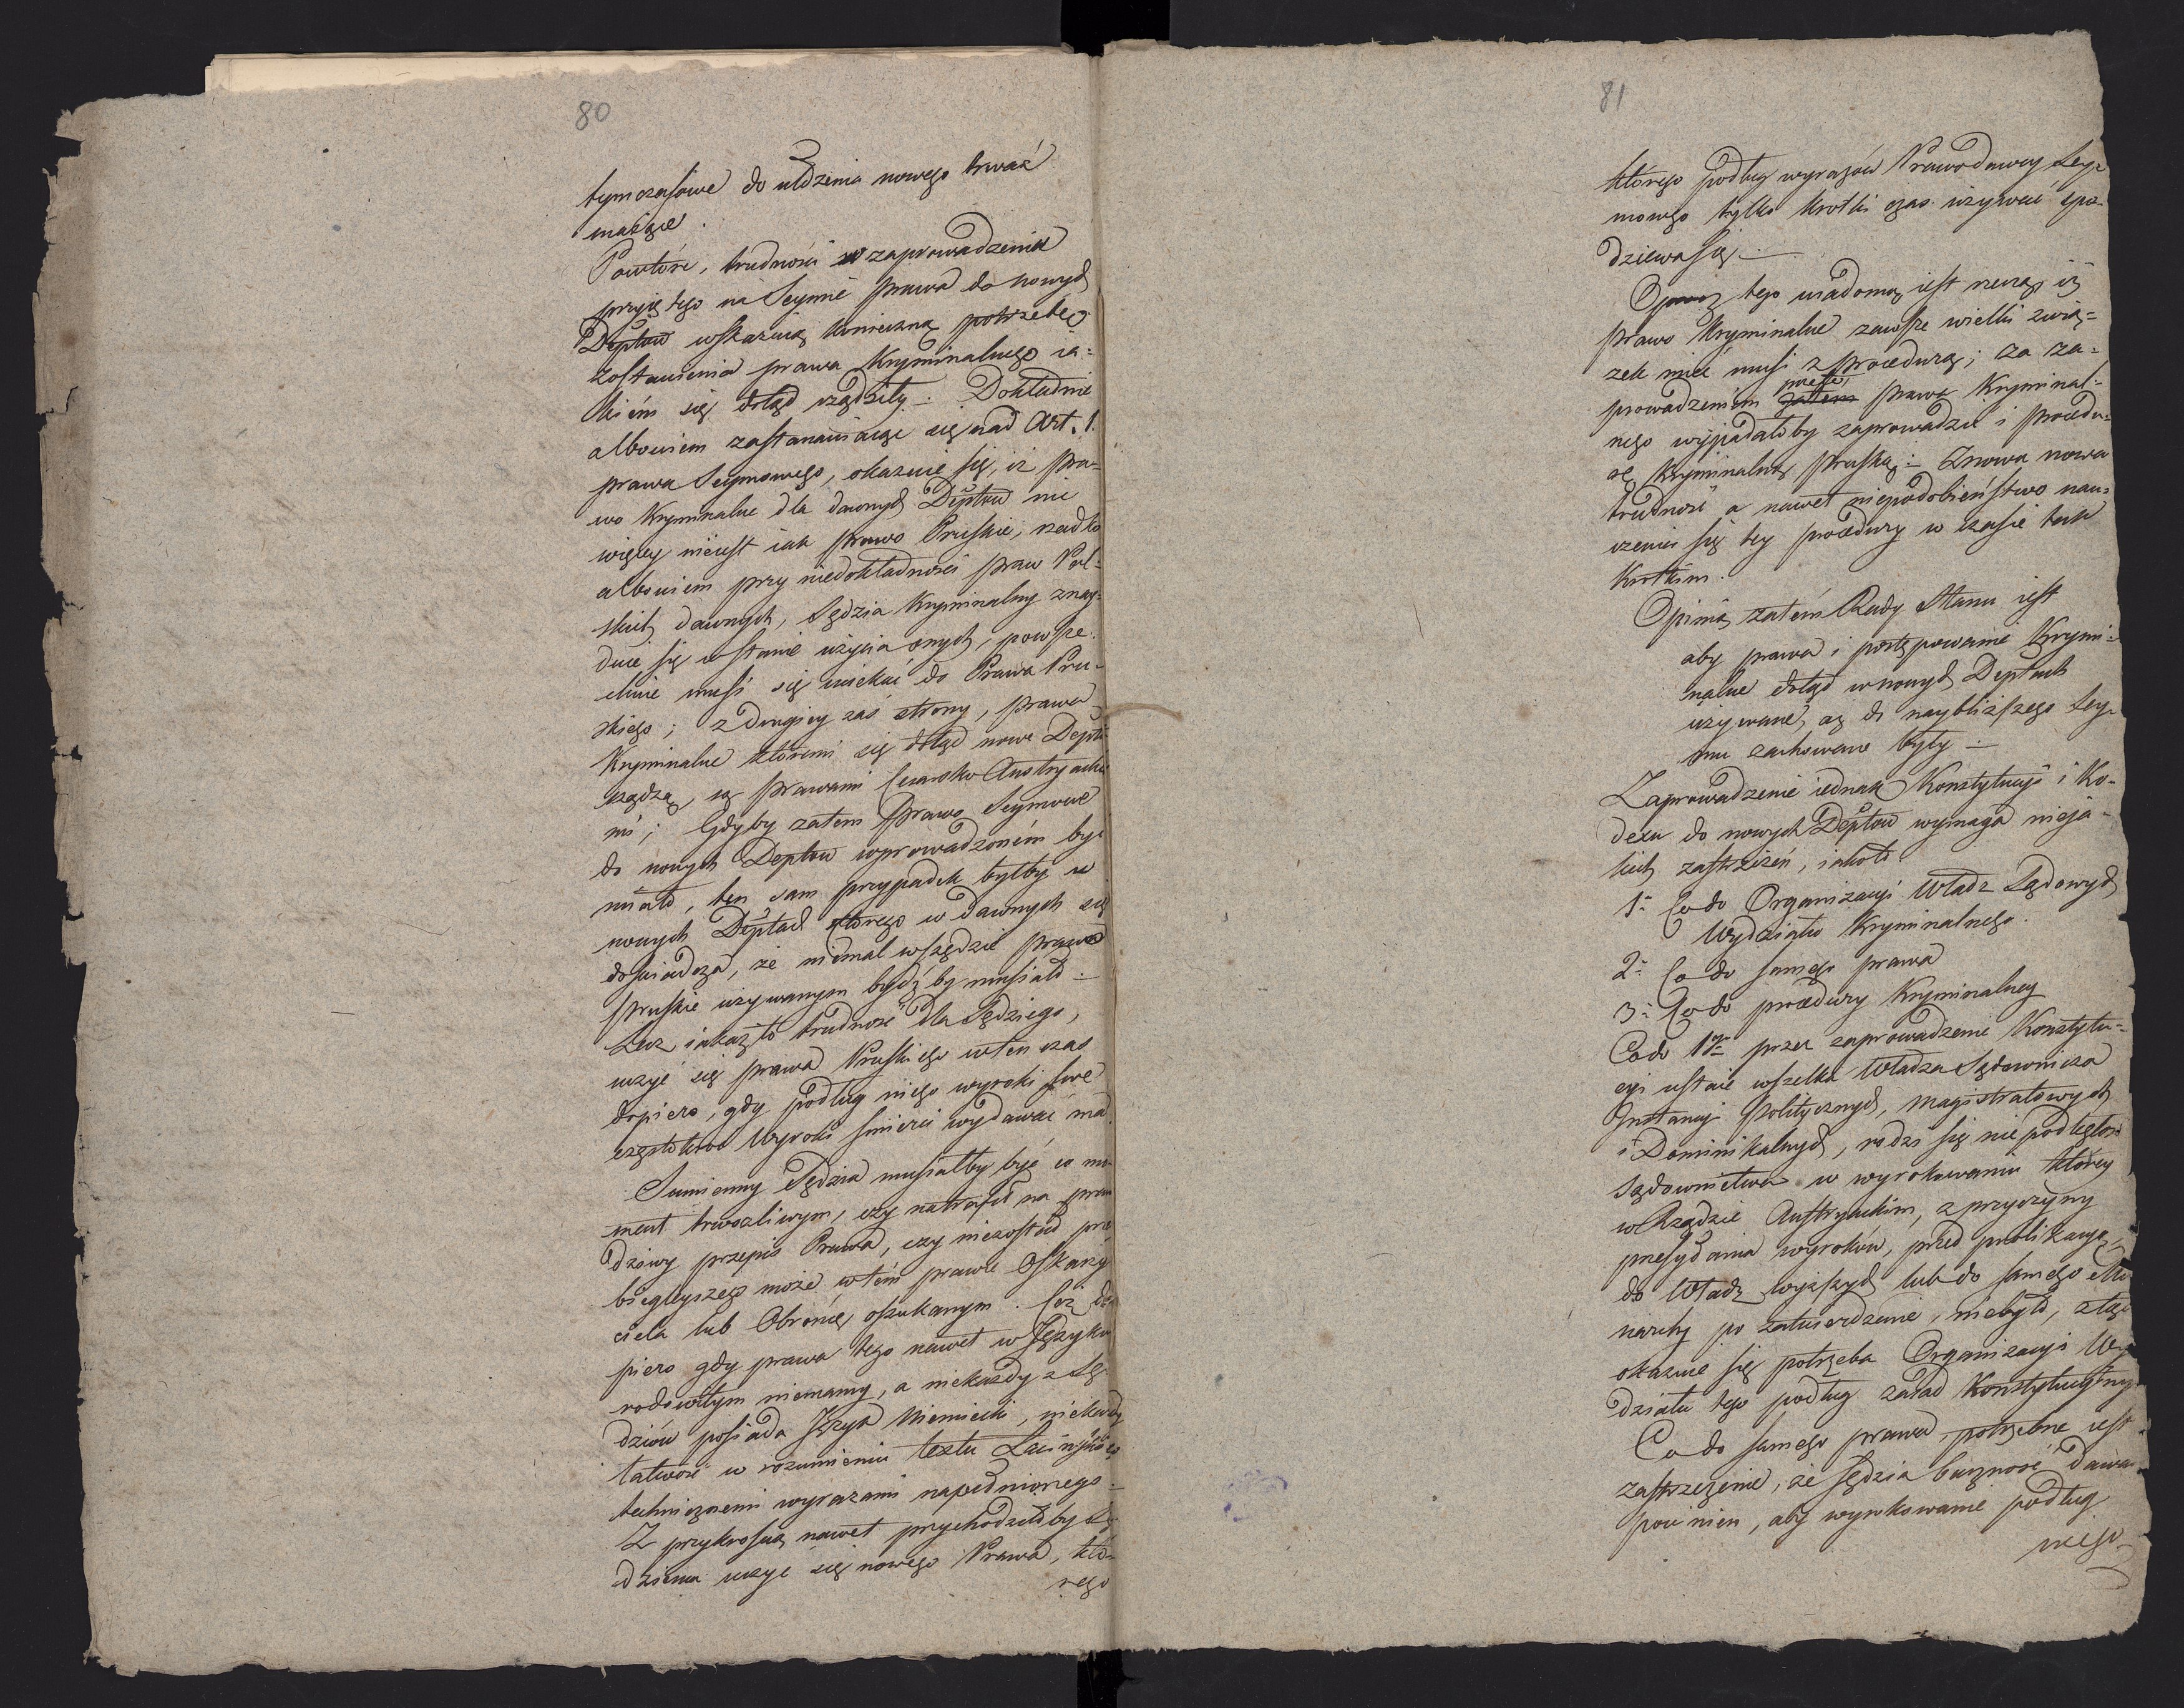 80
tymczasowe do ułożenia nowego trwać
maiące.
Powtóre, trudności w zaprowadzeniu
przyiętego na Seymie prawa do nowych
Deptow wskazuią konieczną potrzebę
zostawienia prawa Kryminalnego ia=
kiém się dotąd rządziły. Dokładnie
albowiem zastanawiaiąc się nad Art. 1.
prawa Seymowego, okazuie się, iż pra=
wo Kryminalne dla dawnych Deptow nic
więcey nieiest iak prawo Pruskie, rzadko
albowiem przy niedokładności praw Pol=
skich dawnych, Sędzia Kryminalny znay=
duie się w stanie użycia onych, powsze=
chnie musi się uciekać do Prawa Pru=
skiego; z drugiey zaś strony, prawa
Kryminalne któremi się dotąd nowe Depta
rządzą, są prawami Cesarsko Austryackie
mi; Gdyby zatem Prawo Seymowe
do nowych Deptow wprowadzoném być
miało, ten sam przypadek byłby w
nowych Deptach którego w dawnych się
doświadcza, że niemal wszędzie prawo
pruskie używanym bydź by musiało.
Lecz iakaż to trudność dla Sędziego,
uczyć się prawa Pruskiego wten czas
dopiero, gdy podług niego wyroki swe
częstokroć Wyroki śmierci wydawać ma.
Sumienny Sędzia musiałby być co mo=
ment trwożliwym, czy natrafił na praw
dziwy przepis Prawa, czy niezostał prze
biegleyszego może w tém prawie Oskarży
ciela lub Obrońcę oszukanym. Coż do
piero gdy prawa tego nawet w Języku
rodowitym niemamy, a niekażdy z Sę=
dziów posiada Język Niemiecki, niekażdy
łatwość w rozumieniu textu Łacińskiego
technicznemi wyrazami napełnionego.
Z przykrością nawet przychodziłoby Sę=
dziemu uczyć się nowego Prawa, któ=
rego
81
którego podług wyrazów Prawodawcy Sey=
mowego tylko krótki czas używać spo=
dziewa się.
Oprocz tego wiadomą iest rzeczą iż
prawo Kryminalne zawsze wielki zwią=
zek mieć musi z procedurą; za za=
prowadzeniem przeto prawa Kryminal=
nego wypadałoby zaprowadzić i procedu=
rę Kryminalną pruską: Znowu nowa
trudność a nawet niepodobieństwo nau=
czenia się tey procedury w czasie tak
krótkim.
Opinią zatém Rady Stanu iest
aby prawa i postępowanie Krymi=
nalne dotąd w nowych Deptach
używane, aż do naybliższego Sey=
mu zachowane były.
Zaprowadzenie iednak Konstytucyi i Ko=
dexu do nowych Deptow wymaga nieja=
kich zastrzeżeń, iakoto
1. Co do Organizacyi Władz Sądowych
Wydziału Kryminalnego.
2. Co do samego prawa
3. Co do procedury Kryminalney
Co do 1go przez zaprowadzenie Konstytu=
cyi ustaie wszelka Władza Sądownicza
Instancyi Politycznych, Magistratowych
i Dominikalnych, rodzi się niepodległość
Sądownictwa w wyrokowaniu którey
w Rządzie Austryackim, z przyczyny
przesyłania wyroków, przed publikacyą,
do Władz wyższych lub do samego Mo
narchy po zatwierdzenie, niebyło, ztąd
okazuie się potrzeba Organizacyi Wy
działu tego podług zasad Konstytucyiny
Co do samego prawa, potrzebne iest
zastrzeżenie, że Sędzia baczność dawać
powinien, aby wyrokowanie podług
niego